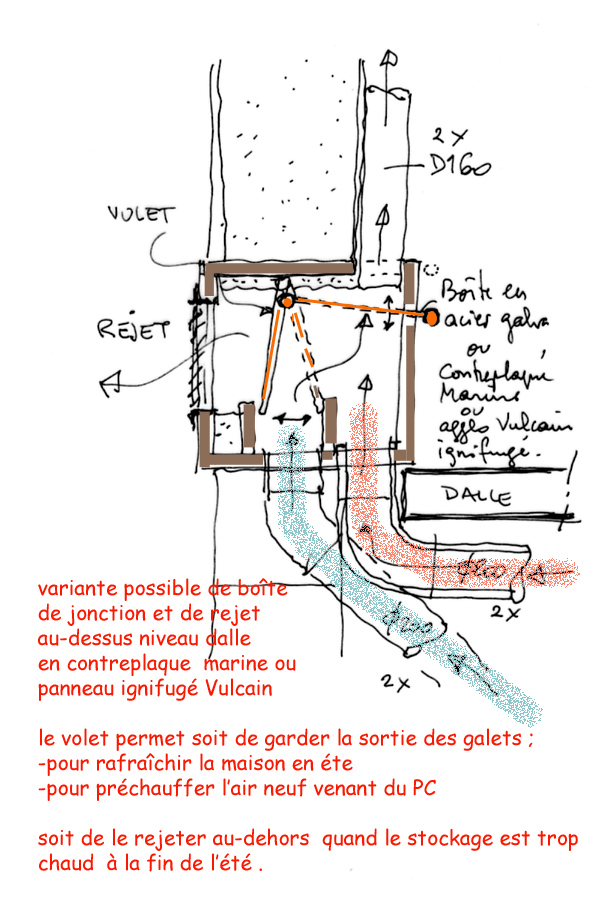 2 x
D160
VOLET
REJET
Boîte en
acier galva
ou
Contreplaqué
Marine
ou
agglo Vulcain
ignifugé.
DALLE
ø200
2x
ø200
2x
variante possible de boîte
de jonction et de rejet
au-dessus niveau dalle
en contreplaque marine ou
panneau ignifugé Vulcain
le volet permet soit de garder la sortie des galets ;
-pour rafraîchir la maison en éte
-pour préchauffer l'air neuf venant du PC
soit de le rejeter au-dehors quand le stockage est trop
chaud à la fin de l'été .